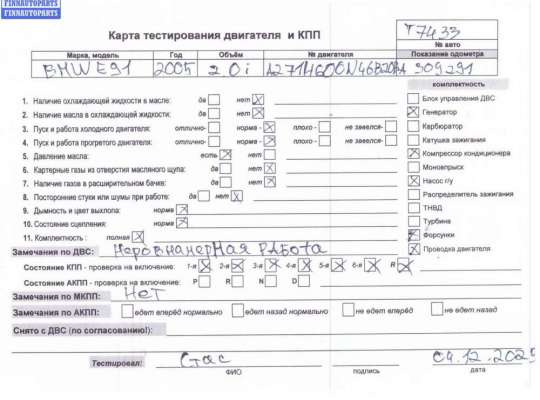 FINNAUTOPARTS
FINNAUTOPARTS
Карта тестирования двигателя и КПП
T7433
№ авто
Марка, модель Год Объём № двигателя Показание одометра
BMW E91 2005 2.0i 309291
комплектность
1. Наличие охлаждающей жидкости в масле: да нет
2. Наличие масла в охлаждающей жидкости: да нет
3. Пуск и работа холодного двигателя: отлично- норма - плохо - не завелся-
4. Пуск и работа прогретого двигателя: отлично- норма - плохо - не завелся-
5. Давление масла: есть нет
6. Картерные газы из отверстия масляного щупа: да нет
7. Наличие газов в расширительном бачке: да нет
8. Посторонние стуки или шумы при работе: да нет
9. Дымность и цвет выхлопа: норма
10. Состояние сцепления: норма
11. Комплектность : полная
Блок управления ДВС
Генератор
Карбюратор
Катушка зажигания
Компрессор кондиционера
Моновпрыск
Насос г/у
Распределитель зажигания
ТНВД
Турбина
Форсунки
Проводка двигателя
Замечания по ДВС: Неровнанерная работа
Состояние КПП - проверка на включение: 1-я 2-я 3-я 4-я 5-я 6-я R
Состояние АКПП - проверка на включение: P R N D
Замечания по МКПП: Нет
Замечания по АКПП: едет вперёд нормально едет назад нормально не едет вперёд не едет назад
Снято с ДВС (по согласованию!):
Тестировал: Стас 04.12.2025
ФИО подпись дата